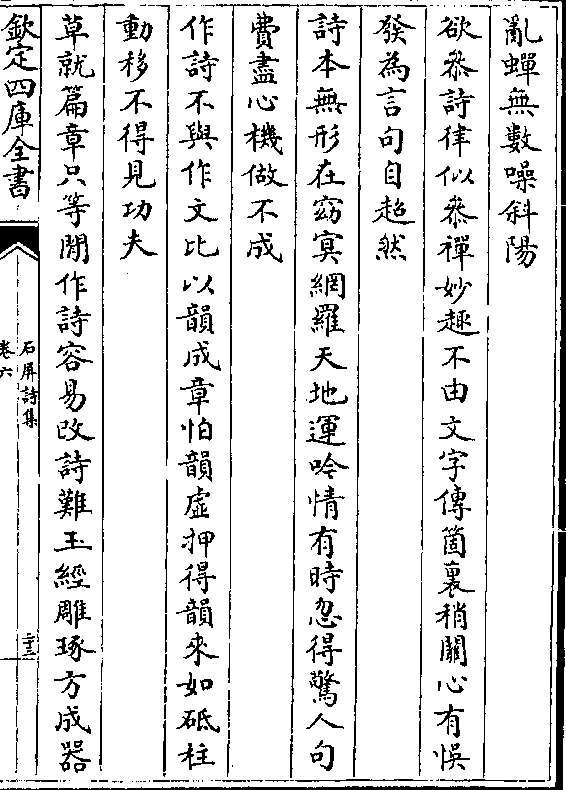 亂蟬無數噪斜陽
欲叅詩律似叅禪妙趣不由文字傳箇裏稍關心有悞
發為言句自超然
詩本無形在窈冥網羅天地運吟情有時忽得驚人句
費盡心機做不成
作詩不與作文比以韻成章怕韻虛押得韻來如砥柱
動移不得見功夫
草就篇章只等閒作詩容易改詩難玉經雕琢方成器
欽定四庫全書
石屏詩集
卷六
二十三